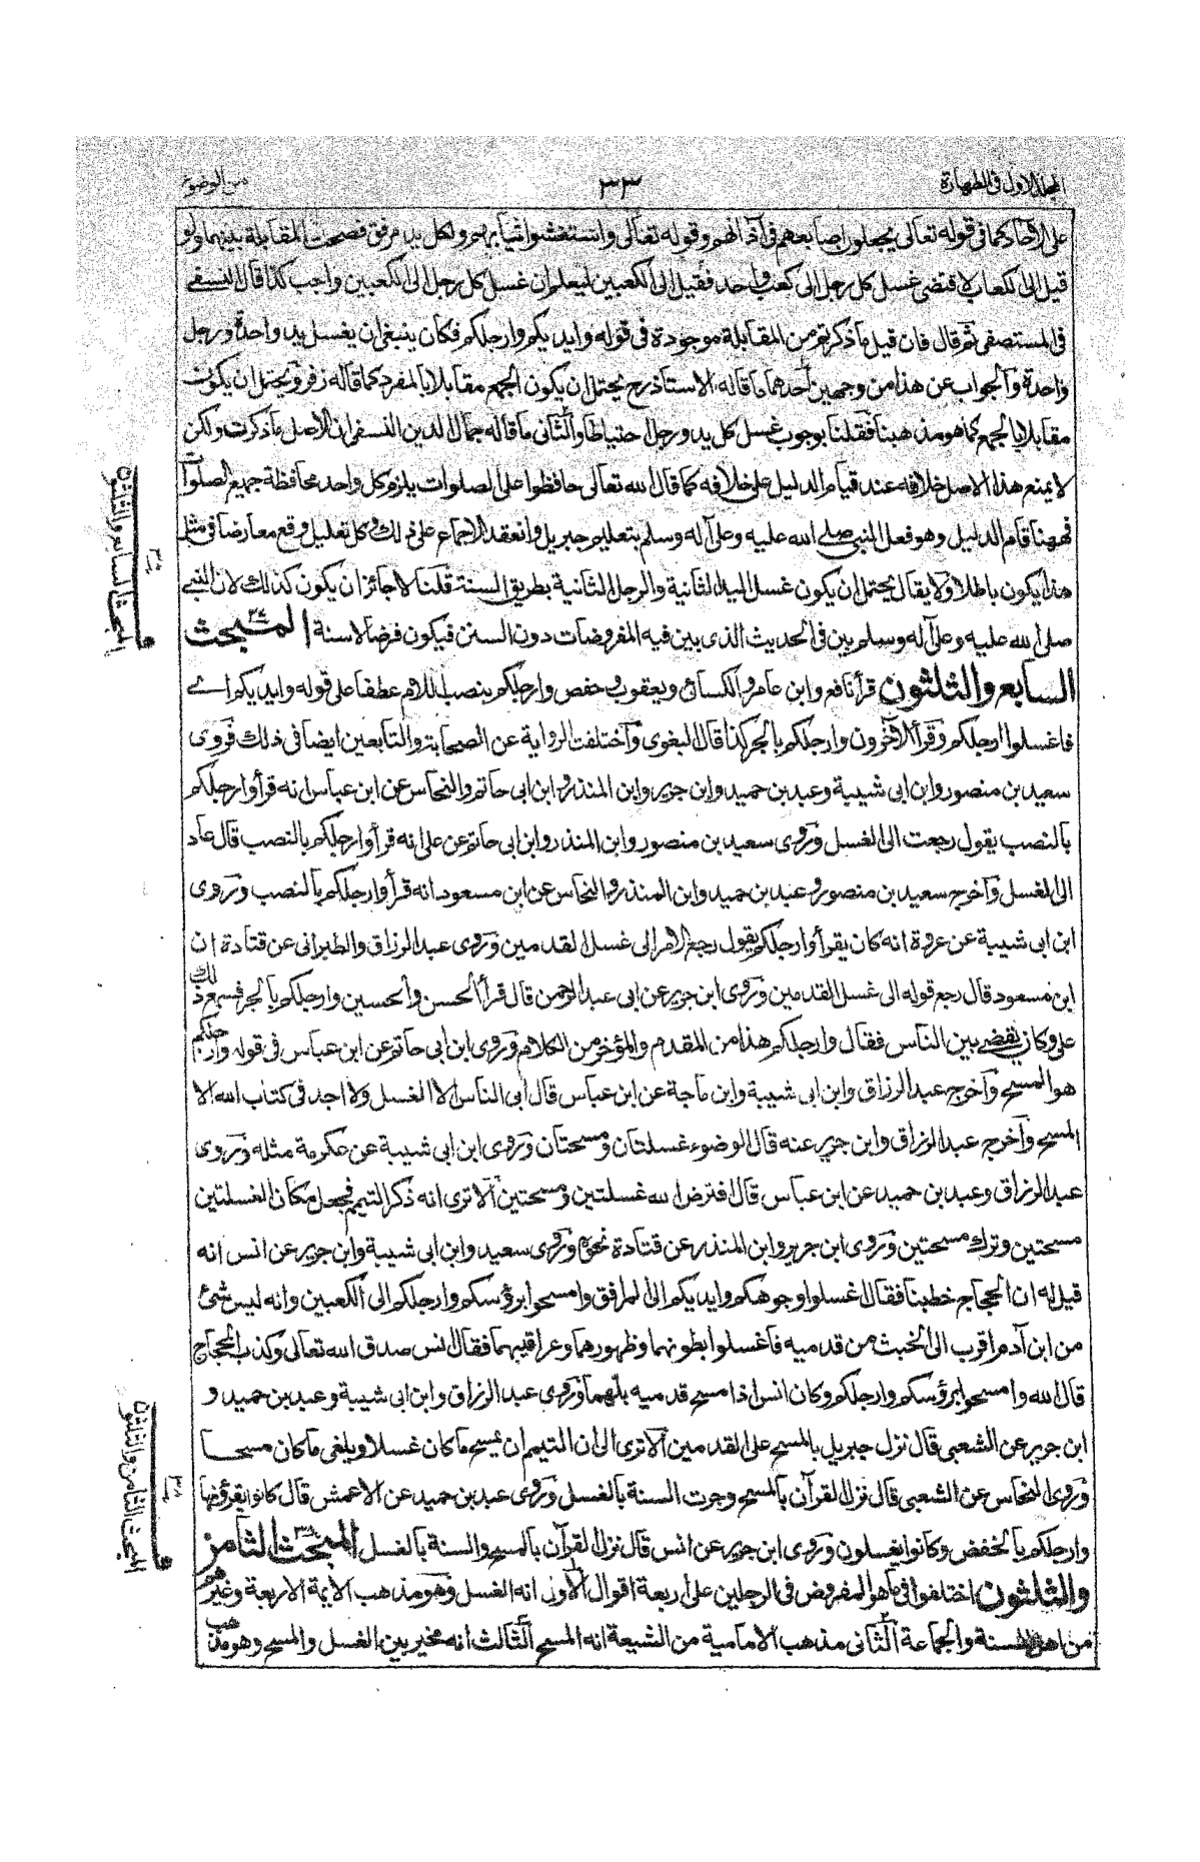 المجلد الاول فى الطهارة
٣٣
من الوضوء
على الآحاد كما فى قوله تعالى يجعلون اصابعهم فى آذانهم وقوله تعالى واستغشوا ثيابهم ولكل يد مرفق فصحت المقابلة بينهما ولو
قيل الى الكعاب لاقتضى غسل كل رجل الى كعب واحد فقيل الى الكعبين ليعلم ان غسل كل رجل الى الكعبين واجب كذا قال النسفى
فى المستصفى ثم قال فان قيل ما ذكرتم من المقابلة موجودة فى قوله وايديكم وارجلكم فكان ينبغى ان يغسل يد واحدة ورجل
واحدة والجواب عن هذا من وجهين احدهما ما قاله الاستاذ رح يحتمل ان يكون الجمع مقابلا بالمفرد كما قاله زفر ويحتمل ان يكون
مقابلا بالجمع كما هو مذهبنا فقلنا بوجوب غسل كل يد ورجل احتياطا والثانى ما قاله جمال الدين النسفى ان الاصل ما ذكرت ولكن
لا يمنع هذا الاصل خلافه عند قيام الدليل على خلافه كما قال الله تعالى حافظوا على الصلوات يلزم كل واحد محافظة جميع الصلوات
فههنا قام الدليل وهو فعل النبى صلى الله عليه وعلى آله وسلم بتعليم جبريل وانعقد الاجماع على ذلك وكل تعليل وقع معارضا فى مثل
هذا يكون باطلا ولا يقال يحتمل ان يكون غسل اليد الثانية والرجل الثانية بطريق السنة قلنا لا جائز ان يكون كذلك لان النبى
صلى الله عليه وعلى آله وسلم بين فى الحديث الذى بين فيه المفروضات دون السنن فيكون فرضا لا سنة المبحث ٣٧
السابع والثلثون قرأ نافع وابن عامر والكسائى ويعقوب وحفص وارجلكم بنصب اللام عطفا على قوله وايديكم اے
فاغسلوا ارجلكم وقرأ الآخرون وارجلكم بالجر كذا قال البغوى واختلفت الرواية عن الصحابة والتابعين ايضا فى ذلك فروى
سعيد بن منصور وابن ابى شيبة وعبد بن حميد وابن جرير وابن المنذر وابن ابى حاتم والنحاس عن ابن عباس انه قرأ وارجلكم
بالنصب يقول رجعت الى الغسل وروى سعيد بن منصور وابن المنذر وابن ابى حاتم عن على انه قرأ وارجلكم بالنصب قال عاد
الى الغسل واخرج سعيد بن منصور وعبد بن حميد وابن المنذر والنحاس عن ابن مسعود انه قرأ وارجلكم بالنصب وروى
ابن ابى شيبة عن عروة انه كان يقرأ وارجلكم يقول رجع الامر الى غسل القدمين وروى عبد الرزاق والطبرانى عن قتادة ان
ابن مسعود قال رجع قوله الى غسل القدمين وروى ابن جرير عن ابى عبد الرحمن قال قرأ الحسن والحسين وارجلكم بالجر فسمع ذلك
على وكان يقضى بين الناس فقال وارجلكم هذا من المقدم والمؤخر من الكلام وروى ابن ابى حاتم عن ابن عباس فى قوله وارجلكم
هو المسح واخرج عبد الرزاق وابن ابى شيبة وابن ماجة عن ابن عباس قال ابى الناس الا الغسل ولا اجد فى كتاب الله الا
المسح واخرج عبد الرزاق وابن جرير عنه قال الوضوء غسلتان ومسحتان وروى ابن ابى شيبة عن عكرمة مثله وروى
عبد الرزاق وعبد بن حميد عن ابن عباس قال افترض الله غسلتين ومسحتين الا ترى انه ذكر التيمم فجعل مكان الغسلتين
مسحتين وترك مسحتين وروى ابن جرير وابن المنذر عن قتادة نحوه وروى سعيد وابن ابى شيبة وابن جرير عن انس انه
قيل له ان الحجاج خطبنا فقال اغسلوا وجوهكم وايديكم الى المرافق وامسحوا برؤسكم وارجلكم الى الكعبين وانه ليس شئ
من ابن آدم اقرب الى الخبث من قدميه فاغسلوا بطونهما وظهورهما وعراقيبهما فقال انس صدق الله تعالى وكذب الحجاج
قال الله وامسحوا برؤسكم وارجلكم وكان انس اذا مسح قدميه بلهما وروى عبد الرزاق وابن ابى شيبة وعبد بن حميد و
ابن جرير عن الشعبى قال نزل جبريل بالمسح على القدمين الا ترى ان التيمم ان يمسح ما كان غسلا ويلغى ما كان مسحا
وروى النحاس عن الشعبى قال نزل القرآن بالمسح وجرت السنة بالغسل وروى عبد بن حميد عن الاعمش قال كانوا يقرؤنها
وارجلكم بالخفض وكانوا يغسلون وروى ابن جرير عن انس قال نزل القرآن بالمسح والسنة بالغسل المبحث ٣٨ الثامن
والثلثون اختلفوا فى ما هو المفروض فى الرجلين على اربعة اقوال الاول انه الغسل وهو مذهب الايمة الاربعة وغيرهم
من اهل السنة والجماعة الثانى مذهب الامامية من الشيعة انه المسح الثالث انه مخير بين الغسل والمسح وهو مذهب
المبحث السابع والثلثون
٣٧
المبحث الثامن والثلثون
٣٨